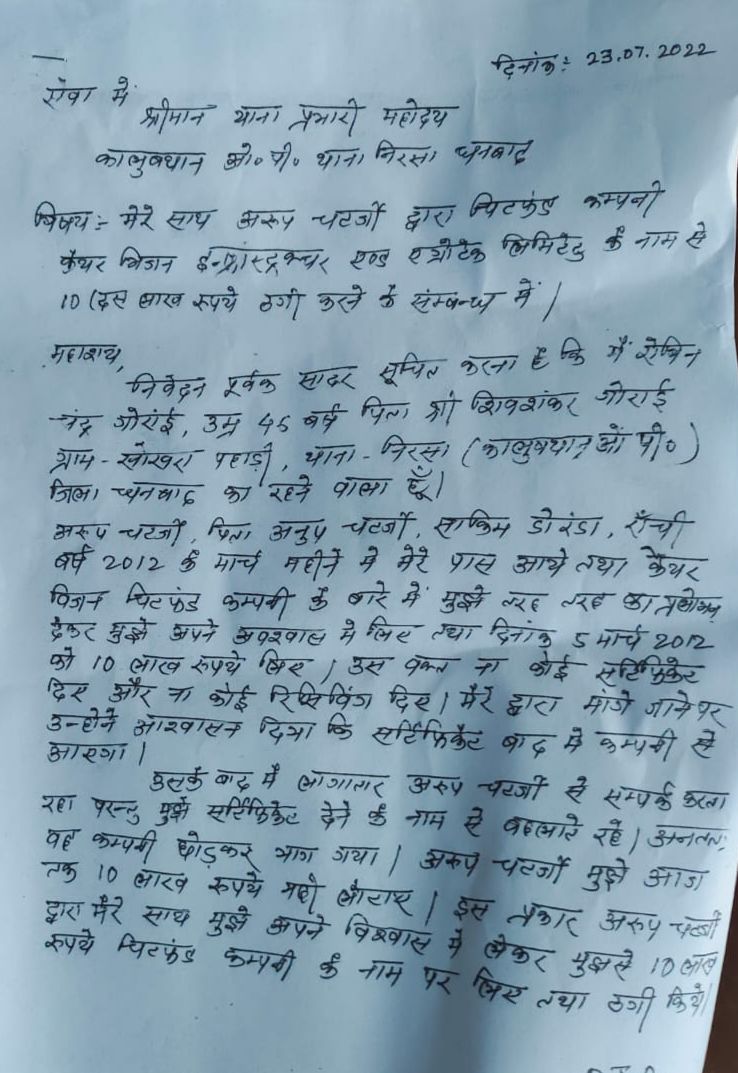 दिनांक: 23.07.2022
सेवा में
श्रीमान थाना प्रभारी महोदय
कालुबथान ओ० पी० थाना निरसा धनबाद
विषय :- मेरे साथ अरूप चटर्जी द्वारा चिटफंड कम्पनी
केयर विजन इन्फ्रास्ट्रक्चर एण्ड एग्रोटेक लिमिटेड के नाम से
10 (दस लाख रूपये ठगी करने के संबन्ध में |
महाशय,
निवेदन पूर्वक सादर सूचित करना है कि मैं रोबिन
चंद्र गोराई, उम्र 45 वर्ष पिता श्री शिवशंकर गोराई
ग्राम - खोखरा पहाड़ी, थाना - निरसा (कालुबथान ओ पी०)
जिला धनबाद का रहने वाला हूँ|
अरूप चटर्जी, पिता अनुप चटर्जी, साकिम डोरंडा, राँची
वर्ष 2012 के मार्च महीने मे मेरे पास आये तथा केयर
विजन चिटफंड कम्पनी के बारे में मुझे तरह तरह का प्रलोभन
देकर मुझे अपने में लिए तथा दिनांक 5 मार्च 2012
को 10 लाख रूपये लिए | उस वक्त ना कोई सर्टिफिकेट
दिए और ना कोई रिसिविंग दिए | मेरे द्वारा मांगे जाने पर
उन्होने आश्वासन दिया कि सर्टिफिकेट बाद मे कम्पनी से
आएगा |
उसके बाद मैं लागातार अरूप चटर्जी से सम्पर्क करता
रहा परन्तु मुझे सर्टिफिकेट देने के नाम से बहलाते रहें | अनततः
वह कम्पनी छोड़कर भाग गया | अरूप चटर्जी मुझे आज
तक 10 लाख रूपये नही लौटाए | इस प्रकार अरूप चटर्जी
द्वारा मेरे साथ मुझे अपने विश्वास मे लेकर मुझसे 10 लाख
रूपये चिटफंड कम्पनी के नाम पर लिए तथा ठगी किये|